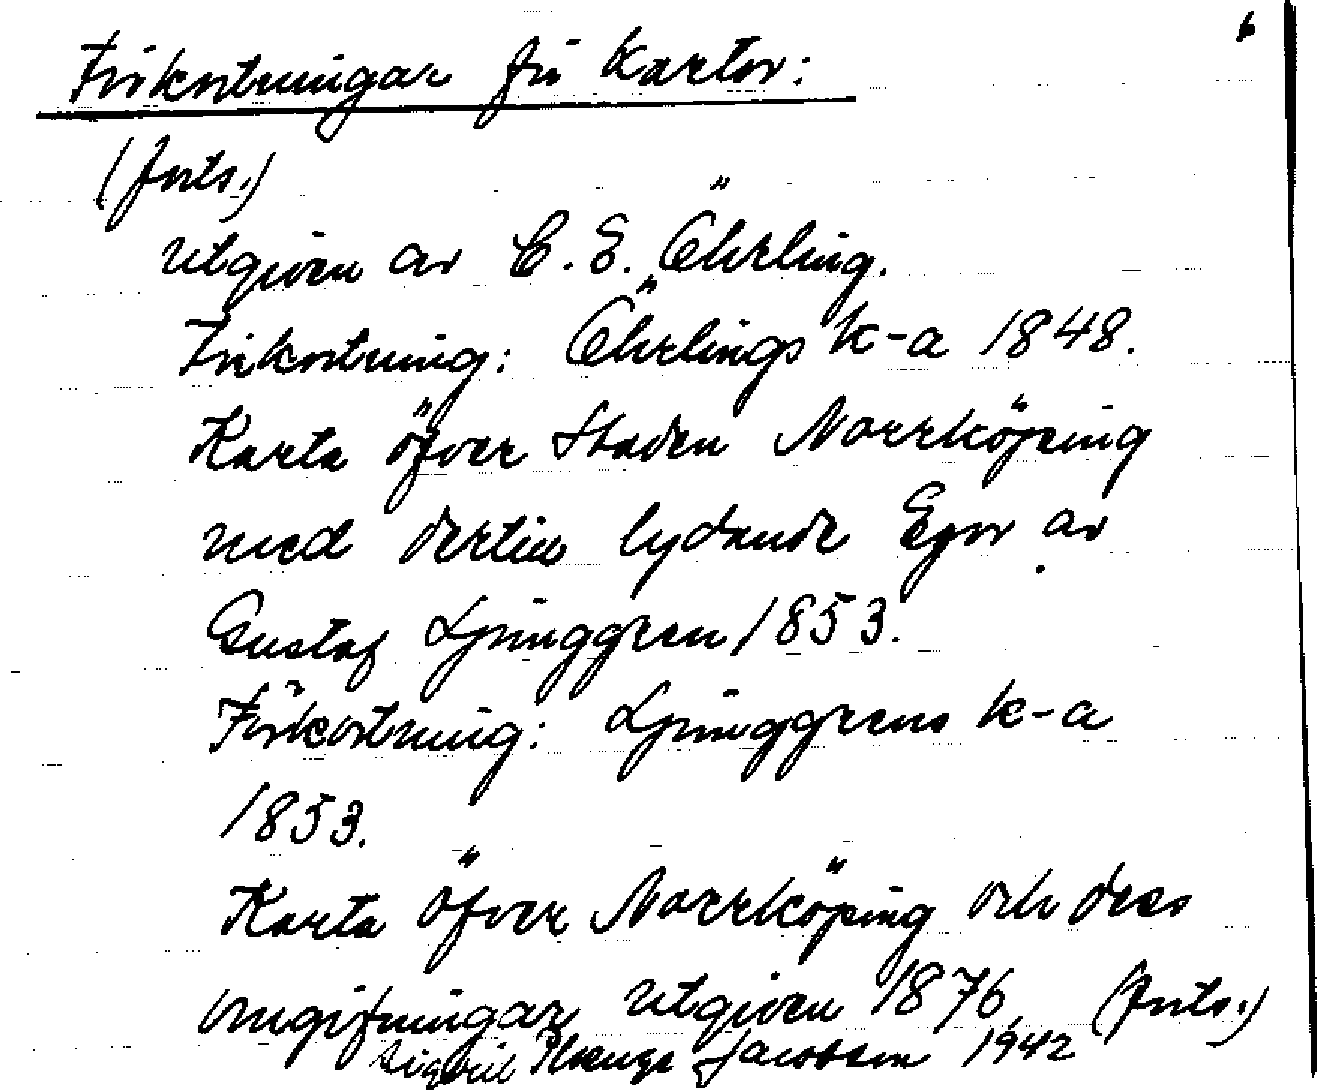 6
Förkortningar för kartor:
(forts.)
utgiven av C. E. Öhrling.
Förkortning: Öhrlings k-a 1848.
Karta öfver Staden Norrköping
med dertill lydande Egor av
Gustaf Ljunggren 1853.
Förkortning: Ljunggrens k-a
1853.
Karta öfver Norrköping och dess
omgifningar utgiven 1876 (forts.)
Jacobsen 1942